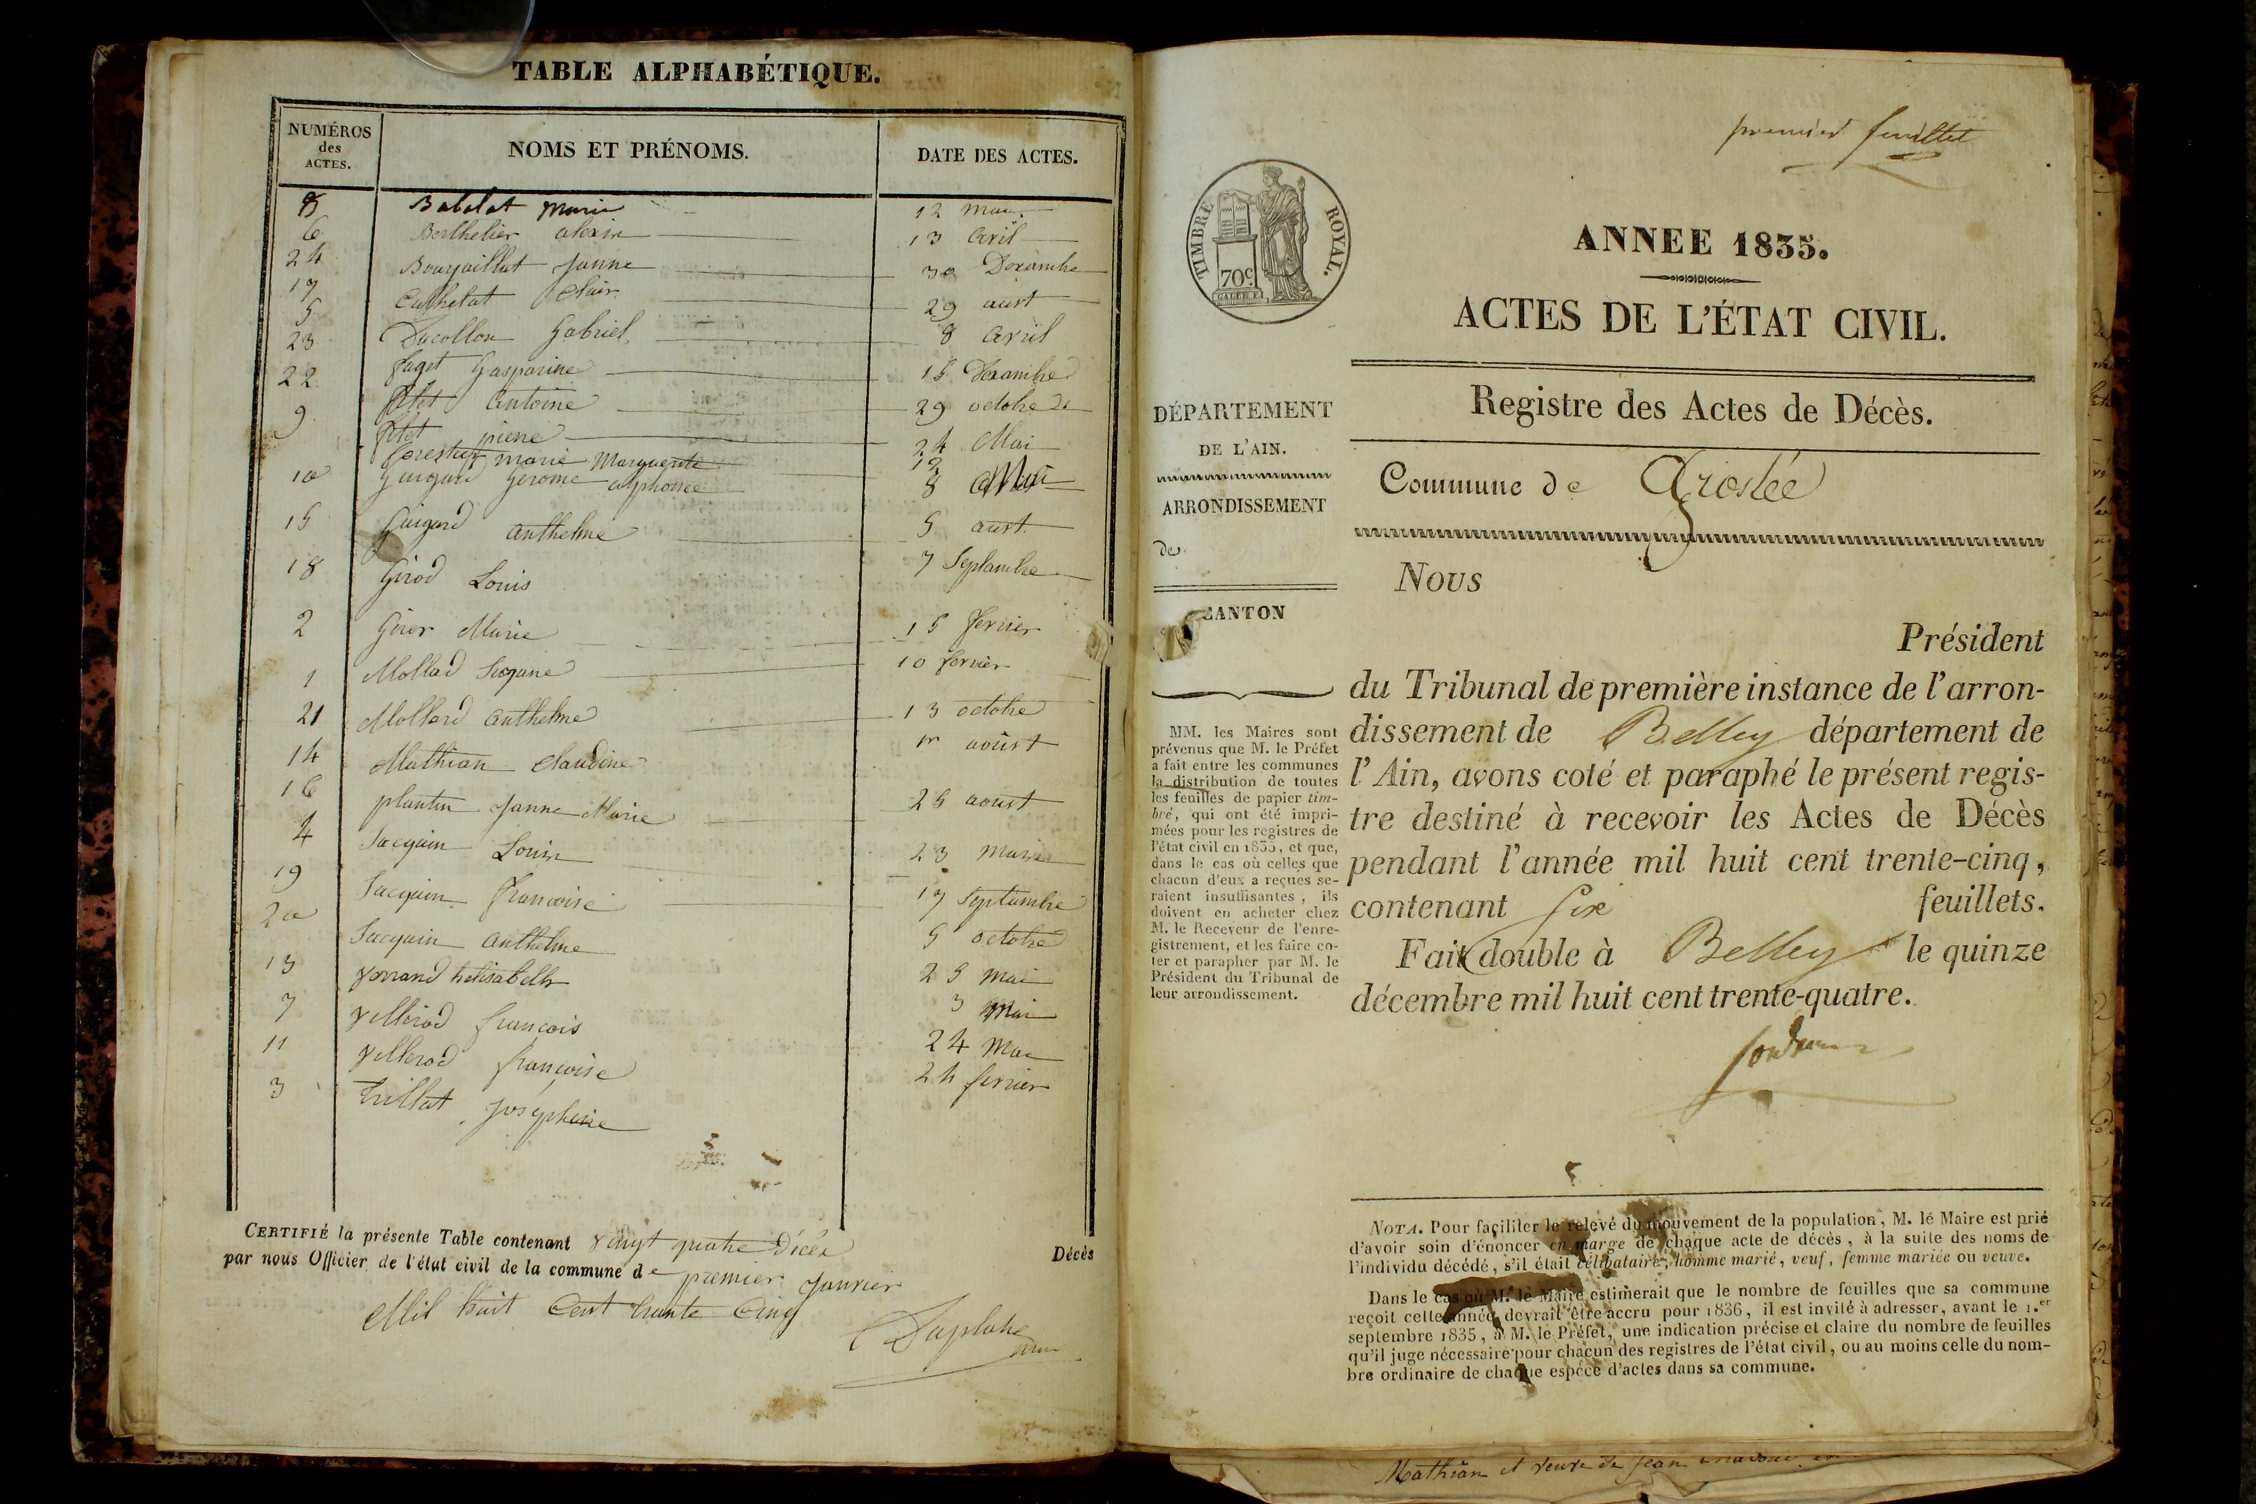 TABLE ALPHABÉTIQUE.
NUMÉROS des ACTES. NOMS ET PRÉNOMS. DATE DES ACTES.
8 Babolat Marie 12 Mai
6 Berthelier alexin 13 Avril
24 Bourjaillat Janne 30 Dexambre
17 Cuchetat Clair 29 aust
5 Ducollon Gabriel 8 Avril
23 faget Gasparine 15 Dexambre
22 fitet Antoine 29 octobre
9 fitet piere 24 Mai
forestier marie Marguerite 12
10 Guigard Gerome alphonce 8 Mai
15 Guigard Anthelme 5 aust
18 Girod Louis 7 Septambre
2 Marie 15 fevrier
1 Mollard 10 fevrier
21 Mollard anthelme 13 octobre
14 Mathian Claudine 1r aoust
16 plantin Janne Marie 25 aoust
4 Jacquin Louise 23 Mars
19 Jacquin francoise 17 Septambre
20 Jacquin anthelme 5 octobre
13 25 mai
7 Vellerod francois 3 Mai
11 Vellerod francoise 24 Mai
3 trillat Joséphine 24 fevrier
CERTIFIÉ la présente Table contenant vingt quatre Décès Décès
par nous Officier de l'état civil de la commune de premier Janvier
Mil huit Cent trante Cinq
premier feuillet
TIMBRE ROYAL.
70c.
ANNEE 1835.
ACTES DE L'ÉTAT CIVIL.
Registre des Actes de Décès.
DÉPARTEMENT
DE L'AIN.
ARRONDISSEMENT
de
CANTON
MM. les Maires sont
prévenus que M. le Préfet
a fait entre les communes
la distribution de toutes
les feuilles de papier tim-
bré, qui ont été impri-
mées pour les registres de
l'état civil en 1835, et que,
dans le cas où celles que
chacun d'eux a reçues se-
raient insuffisantes, ils
doivent en acheter chez
M. le Receveur de l'enre-
gistrement, et les faire co-
ter et parapher par M. le
Président du Tribunal de
leur arrondissement.
Commune de Groslée
Nous
Président
du Tribunal de première instance de l'arron-
dissement de Belley département de
l'Ain, avons coté et paraphé le présent regis-
tre destiné à recevoir les Actes de Décès
pendant l'année mil huit cent trente-cinq,
contenant six feuillets.
Fait double à Belley le quinze
décembre mil huit cent trente-quatre.
NOTA. Pour faciliter le relevé du mouvement de la population, M. le Maire est prié
d'avoir soin d'énoncer en marge de chaque acte de décès, à la suite des noms de
l'individu décédé, s'il était célibataire, homme marié, veuf, femme mariée ou veuve.
Dans le cas où M. le Maire estimerait que le nombre de feuilles que sa commune
reçoit cette année, devrait être accru pour 1836, il est invité à adresser, avant le 1.er
septembre 1835, à M. le Préfet, une indication précise et claire du nombre de feuilles
qu'il juge nécessaire pour chacun des registres de l'état civil, ou au moins celle du nom-
bre ordinaire de chaque espèce d'actes dans sa commune.
Mathian et veuve de Jean